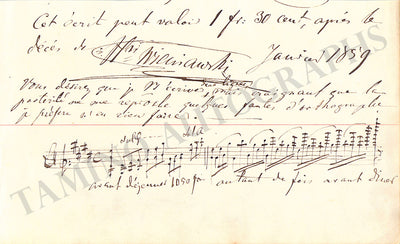 Cet écrit peut valoir 1 fr. 30 cent, après le
décès de Hri Wieniawski Janvier 1859
Vous désirez que je vous écrive, mais craignant que la
postérité ne me reproche quelques fautes d'orthographe
je préfère n'en rien faire
avant déjeuner 1050 fois autant de fois avant dîner
TAMINO AUTOGRAPHS